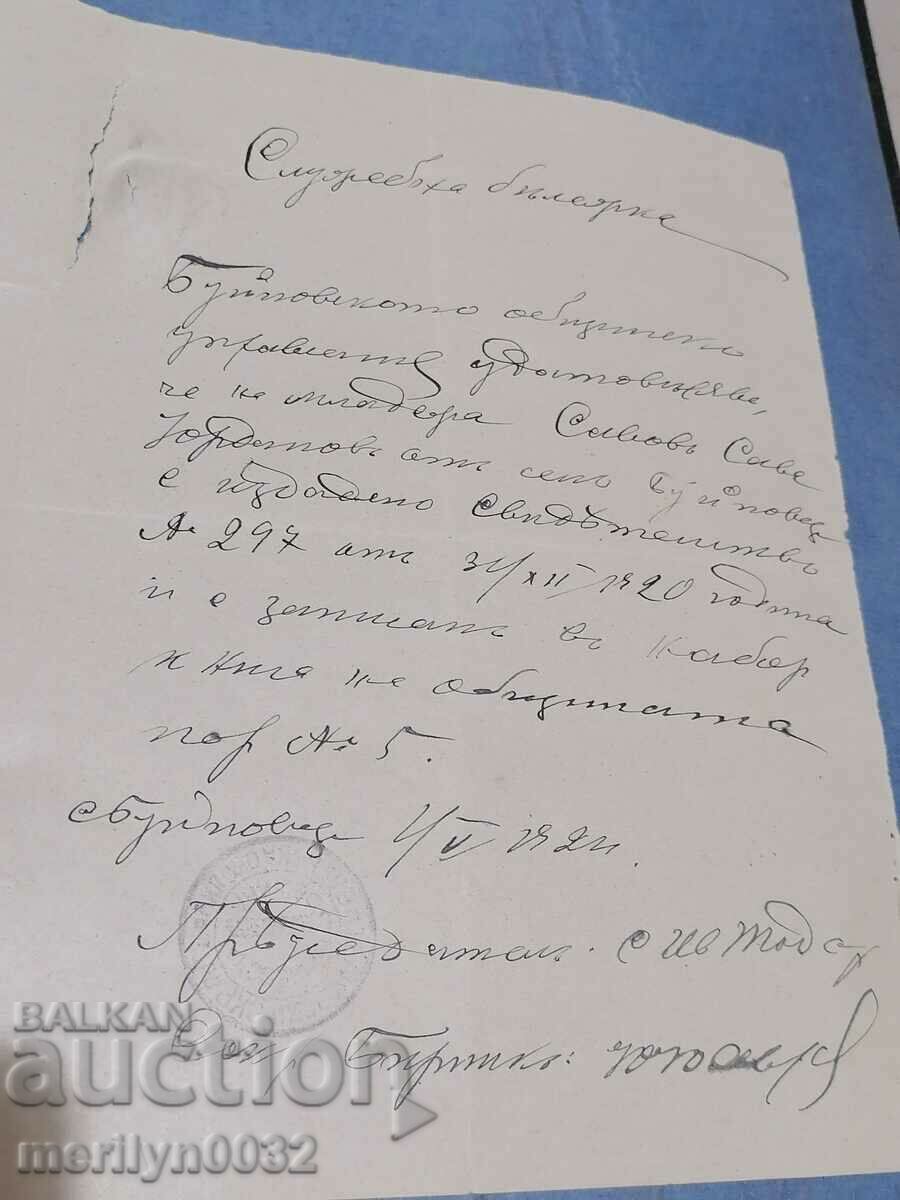 Служебна бележка
Буйновското общинско
управление удостовѣрява,
че на младежа Савовъ Сава
Йордановъ отъ село Буйновец
е издадено свидѣтелство
№ 297 отъ 31/XII/1920 година
и е записанъ въ набор
книга на общината
под № 5.
с Буйновец 4/V 1921г.
Прѣдседатель: С Ив Тодор
Бирникъ:
BALKAN
auction
merilyn0032